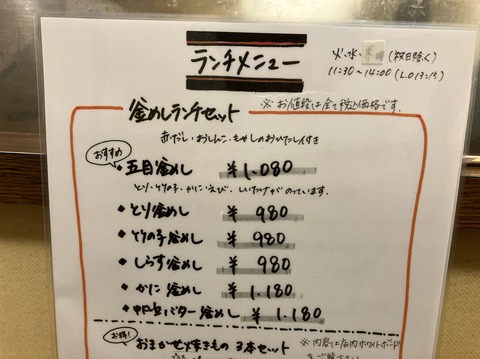 ランチメニュー
火・水・木 (祝日除く)
11:30〜14:00 (L.O 13:15)
釜めしランチセット
※お値段は全て税込価格です。
赤だし・おしんこ・もやしのおひたし付き
おすすめ
・五目釜めし ¥1.080
とり・竹の子・かに・えび・しいたけがのっています。
・とり釜めし ¥980
・竹の子釜めし ¥980
・しらす釜めし ¥980
・かに釜めし ¥1.180
・帆立バター釜めし ¥1.180
お得!
おまかせ焼きもの 3本セット
※内容は店内ホワイトボード
をご覧下さい